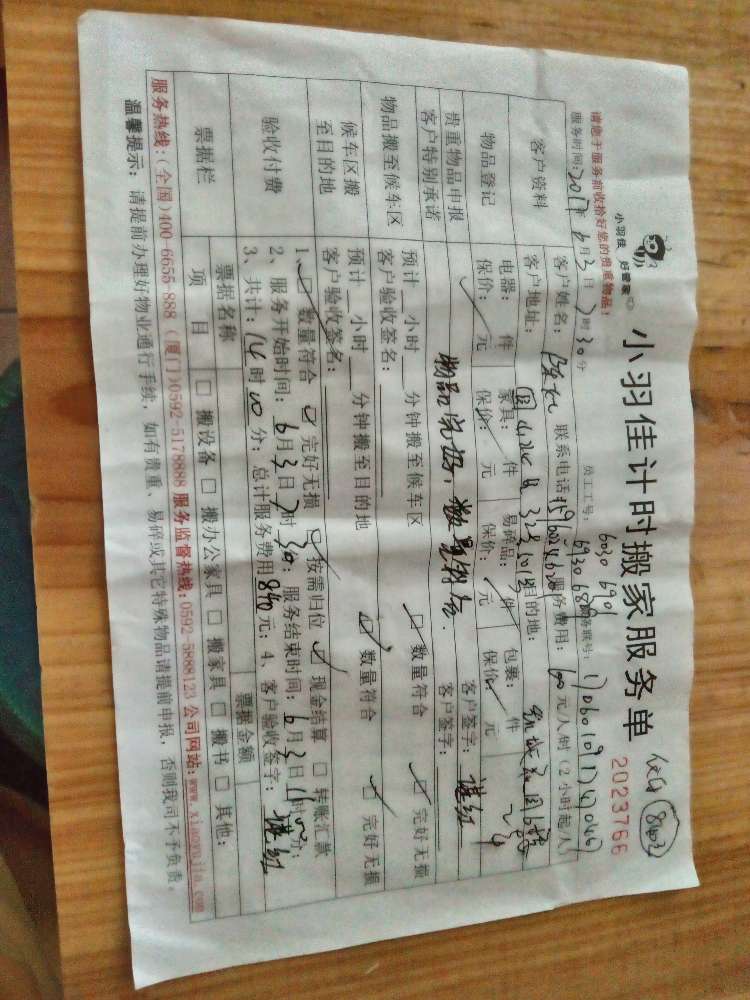 小羽佳 好管家
小羽佳计时搬家服务单
2023766
请您于服务前收拾好您的贵重物品!
员工工号:
服务时间:2017年6月3日7时30分
客户资料
客户姓名:
联系电话
服务费用: 100元/人/时(2小时起/人)
客户地址:
目的地:
物品登记
电器: 件 家具: 件 易碎品: 件 包裹: 件
保价: 元 保价: 元 保价: 元 保价: 元
贵重物品申报
客户签字:
客户特别承诺
物品完好,数量符合.
客户签字:
物品搬至候车区
预计 小时 分钟搬至候车区
□ 数量符合 □ 完好无损
客户验收签名:
候车区搬
至目的地
预计 小时 分钟搬至目的地
□ 数量符合 □ 完好无损
客户验收签名:
验收付费
1、□ 数量符合 □ 完好无损 □ 按需归位 □ 现金结算 □ 转账汇款
2、服务开始时间:6月3日7时30分;服务结束时间:6月3日11时00分;
3、共计:14时00分;总计服务费用840元;4、客户验收签字:
票据栏
票据名称
票据金额
项目
□ 搬设备 □ 搬办公家具 □ 搬家具 □ 搬书 □ 其他:
服务热线:(全国)400-6655-888 (厦门)0592-5178888 服务监督热线:0592-5888123 公司网站:www.xiaoyujia.com
温馨提示: 请提前办理好物业通行手续,如有贵重、易碎或其它特殊物品请提前申报,否则我司不予负责。